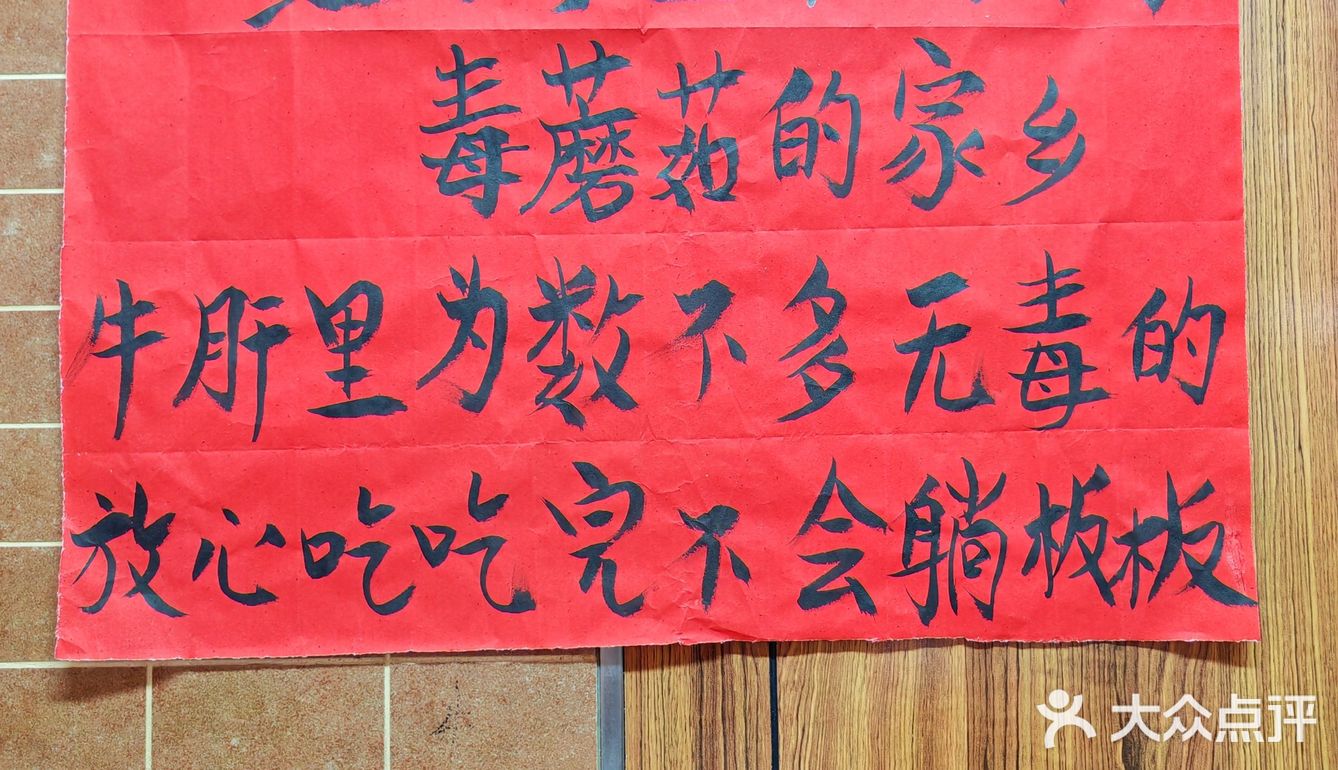 毒蘑菇的家乡
牛肝里为数不多无毒的
放心吃吃完不会躺板板
大众点评